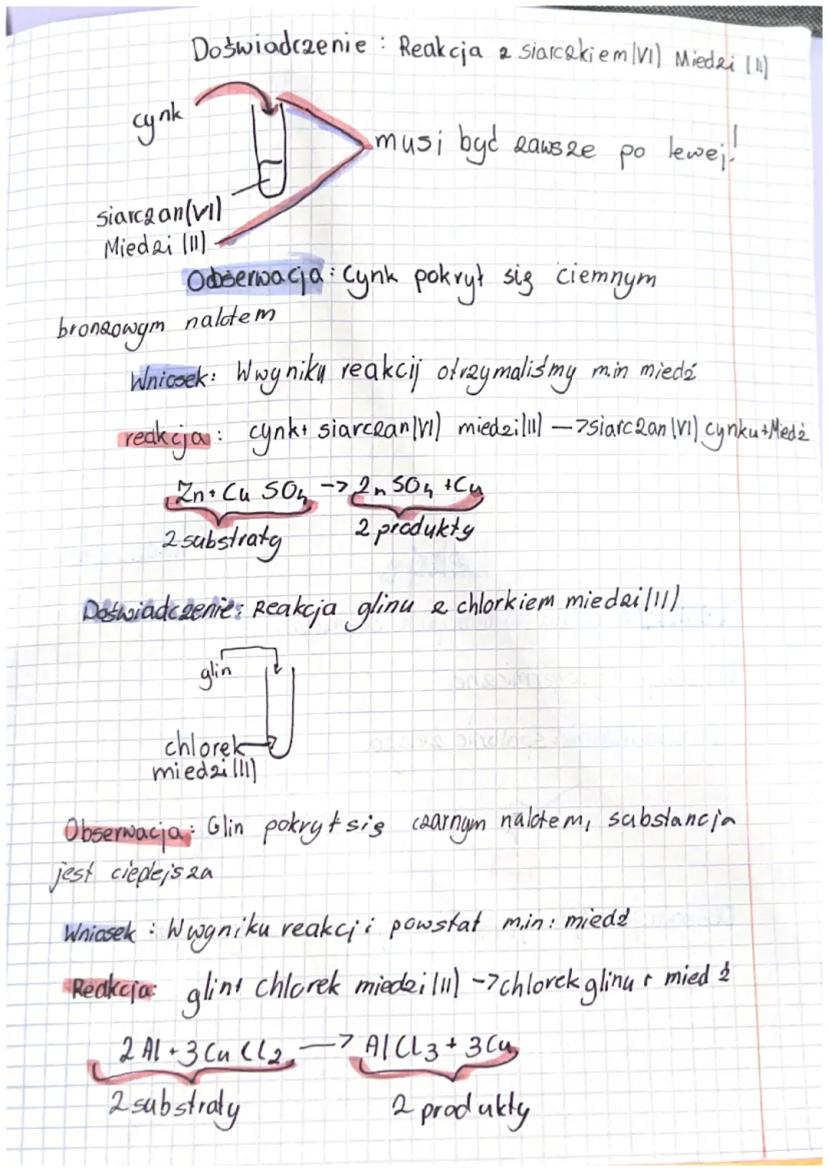 Doświadczenie: Reakcja z siarczkiem(VI) Miedzi (II)
cynk
musi być zawsze po lewej!
siarczan(VI)
Miedzi (II)
Obserwacja: Cynk pokrył się ciemnym
bronzowym nalotem
Wniosek: Wwyniku reakcij otrzymaliśmy m.in miedź
reakcja: cynk+ siarczan(VI) miedzi(II) → siarczan(VI) cynku+Miedź
Zn + CuSO4 -> ZnSO4 + Cu
2 substraty
2 produkty
Doświadczenie: Reakcja glinu z chlorkiem miedzi(II)
glin
chlorek
miedzi(II)
Obserwacja: Glin pokrył się czarnym nalotem, substancja
jest cieplejsza
Wniosek: Wwyniku reakcji powstał m.in: miedź
Reakcja: glin+ chlorek miedzi(II) -> chlorek glinu + miedź
2Al + 3CuCl2 → AlCl3 + 3Cu
2 substraty
2 produkty